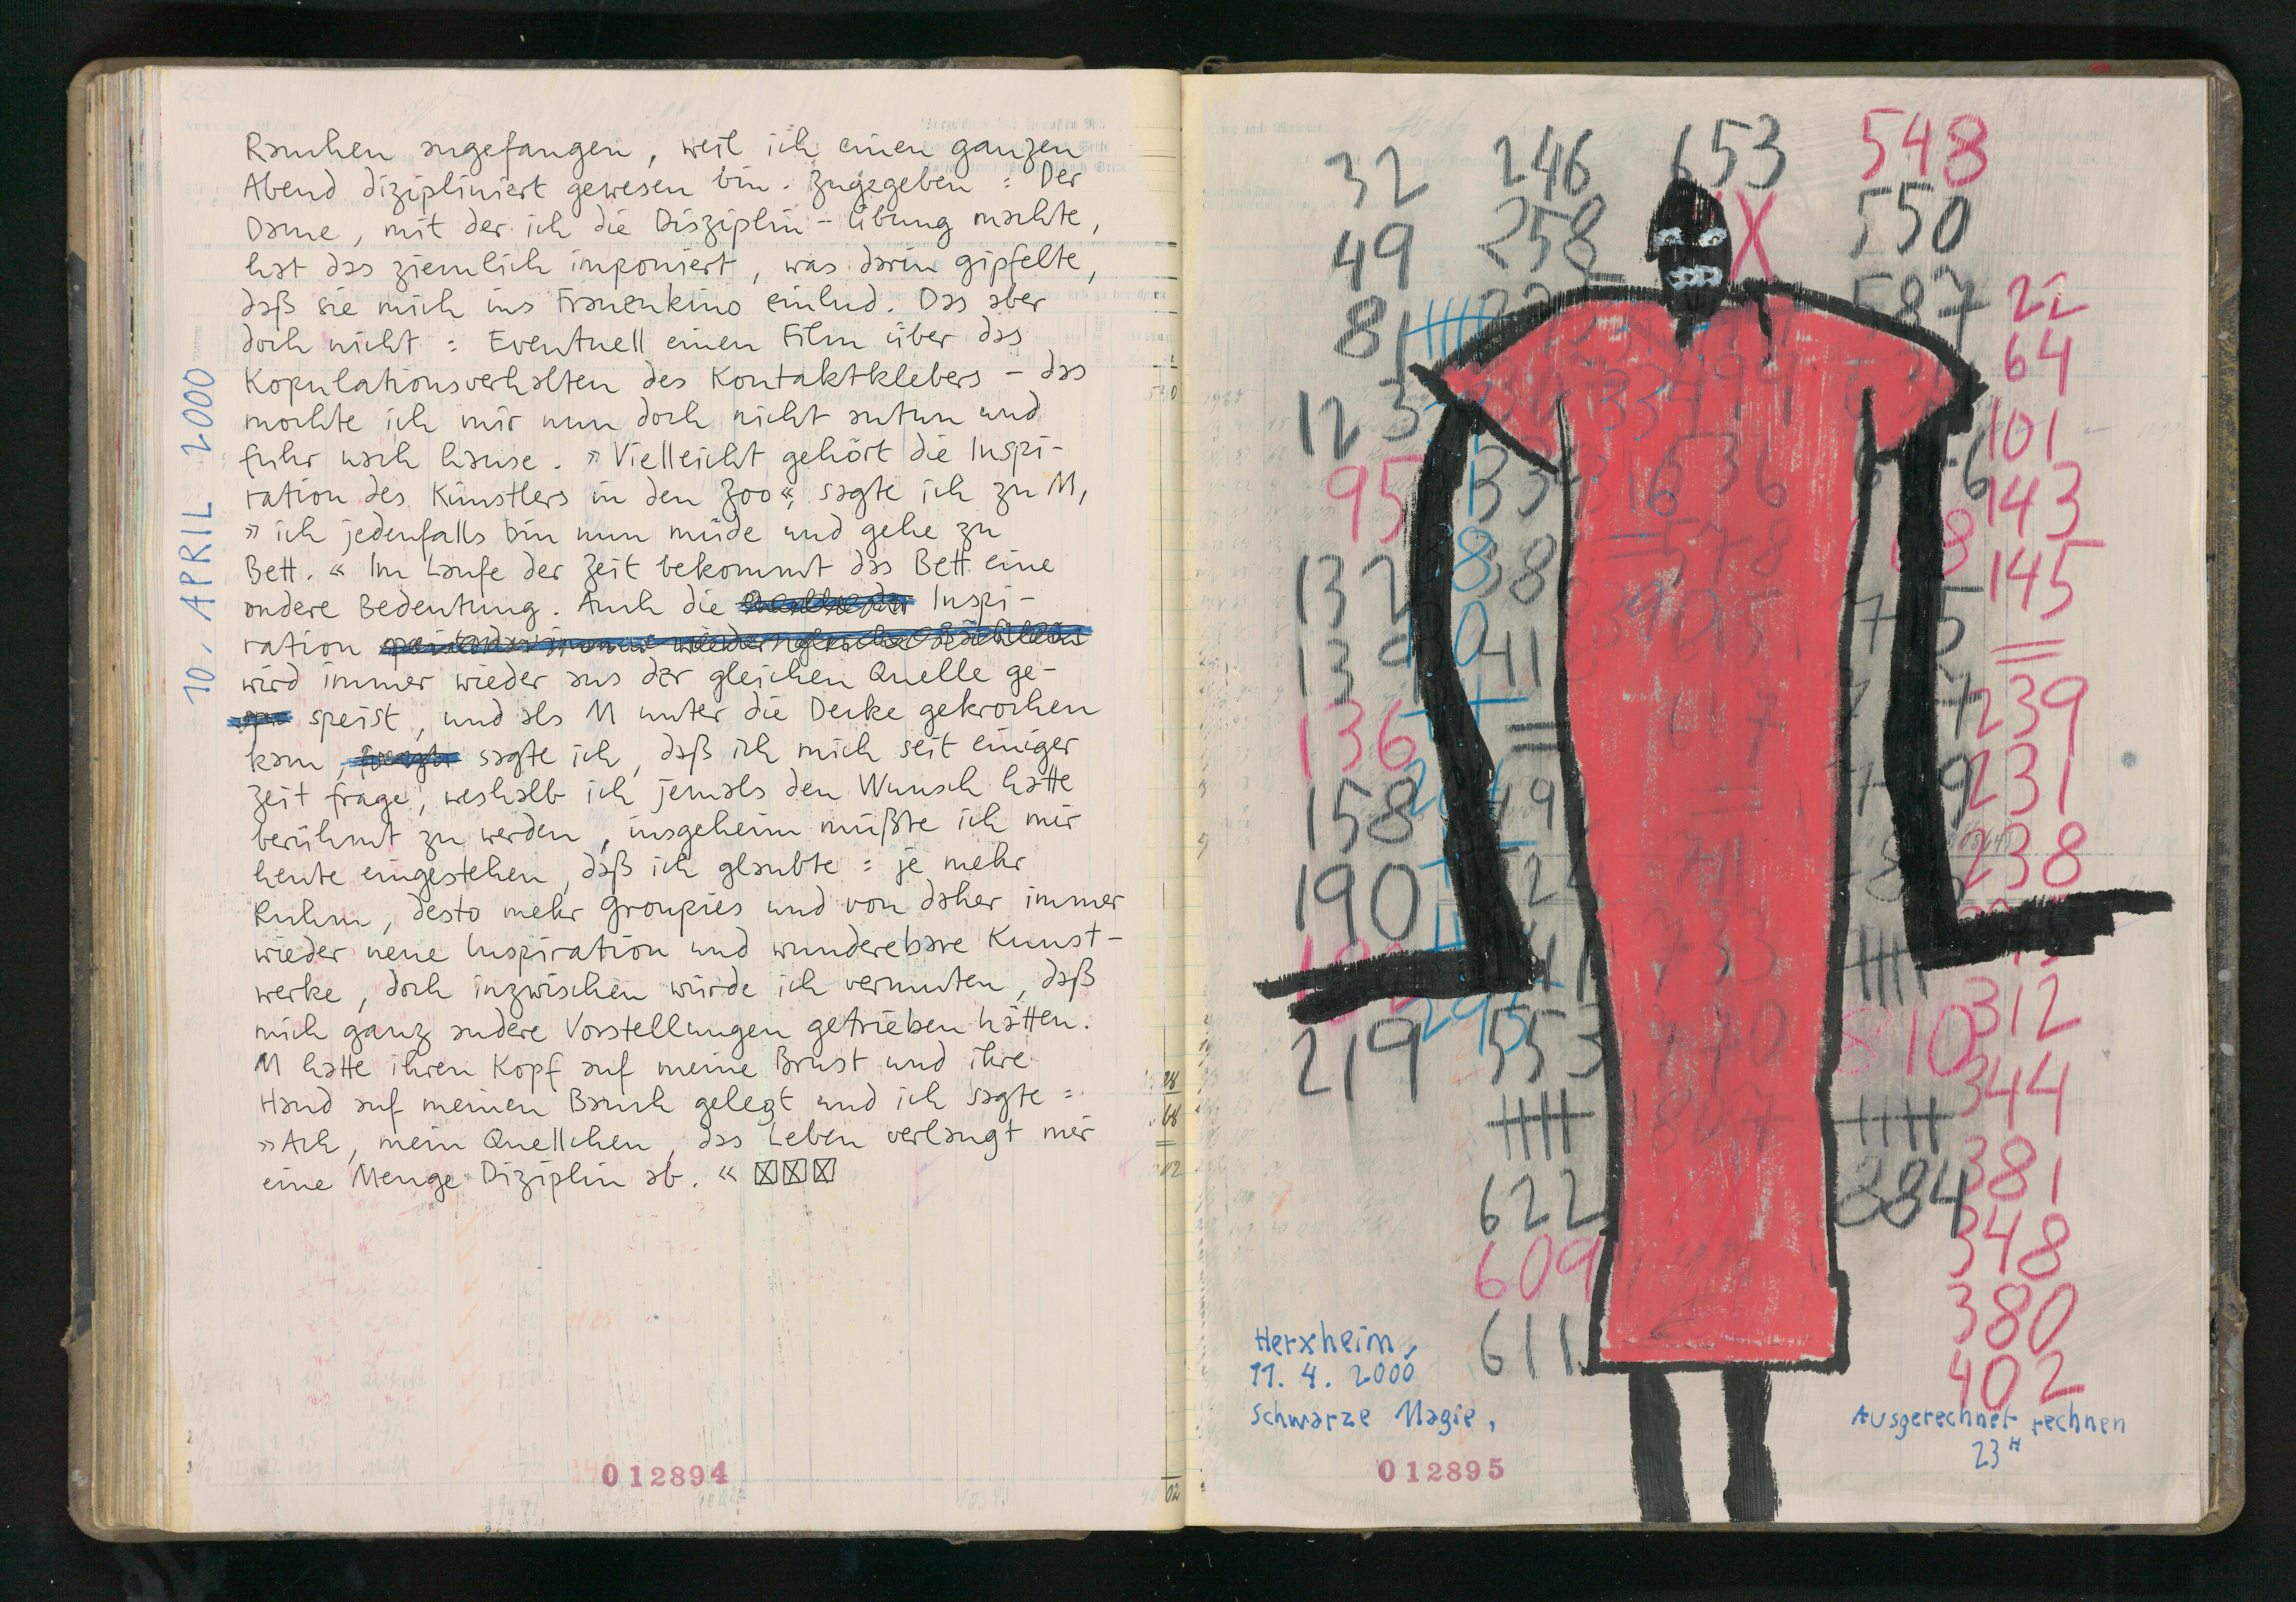 10. APRIL 2000
Rauchen angefangen, weil ich einen ganzen
Abend dizipliniert gewesen bin. Zugegeben: Der
Dame, mit der ich die Disziplin-Übung machte,
hat das ziemlich imponiert, was darin gipfelte,
daß sie mich ins Frauenkino einlud. Das aber
doch nicht: Eventuell einen Film über das
Kopulationsverhalten des Kontaktklebers – das
mochte ich mir nun doch nicht antun und
fuhr nach hause. »Vielleicht gehört die Inspi-
ration des Künstlers in den Zoo«, sagte ich zu M,
»ich jedenfalls bin nun müde und gehe zu
Bett.« Im Laufe der Zeit bekommt das Bett eine
andere Bedeutung. Auch die Inspi-
ration
wird immer wieder aus der gleichen Quelle ge-
speist, und als M unter die Decke gekrochen
kam, sagte ich, daß ich mich seit einiger
Zeit frage, weshalb ich jemals den Wunsch hatte
berühmt zu werden, insgeheim müßte ich mir
heute eingestehen, daß ich glaubte: je mehr
Ruhm, desto mehr Groupies und von daher immer
wieder neue Inspiration und wunderebare Kunst-
werke, doch inzwischen würde ich vermuten, daß
mich ganz andere Vorstellungen getrieben hätten.
M hatte ihren Kopf auf meine Brust und ihre
Hand auf meinen Bauch gelegt und ich sagte:
»Ach, mein Quellchen, das Leben verlangt mir
eine Menge Diziplin ab.«
012894
32 246 653 548
49 258 X 550
81 587
123
95
132
139
136
158
190
219 295 553
622
609
611
22
64
101
143
145
239
231
238
312
810
344
381
884
348
380
402
Herxheim,
11. 4. 2000
Schwarze Magie,
Ausgerechnet rechnen
23H
012895